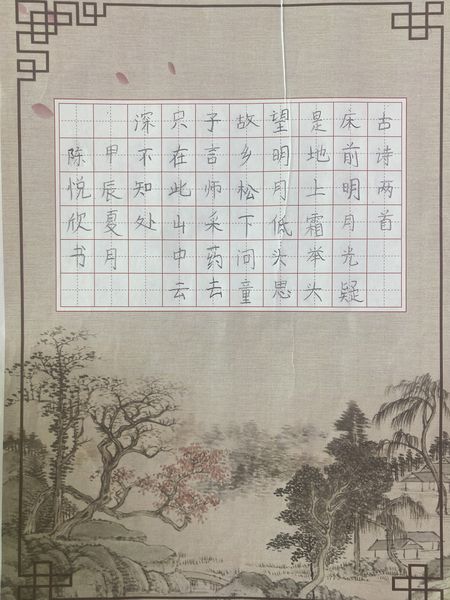 古诗两首
床前明月光疑
是地上霜举头
望明月低头思
故乡松下问童
子言师采药去
只在此山中云
深不知处
甲辰夏月
陈悦欣书